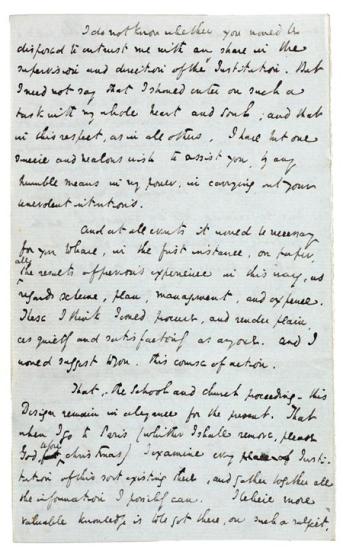 I do not know whether you would be
disposed to entrust me with any share in the
supervision and direction of the Institution. But
I need not say that I should enter on such a
task with my whole heart and soul; and that
in this respect, as in all others, I have but one
sincere and zealous wish to assist you, by any
humble means in my power, in carrying out your
benevolent intentions.
And at all events it would be necessary
for you to have, in the first instance, on paper,
all the results of previous experience in this way, as
regards scheme, plan, management, and expence.
These I think I could procure, and render plain,
as quietly and satisfactorily as anyone. And I
would suggest to you this course of action.
That, the School and Church proceeding - this
Design remain in abeyance for the present. That
when I go to Paris (whither I shall remove, please
God, before Christmas) I examine every Insti-
tution of this sort existing there, and gather together all
the information I possibly can. I believe more
valuable knowledge is to be got there, on such a subject,